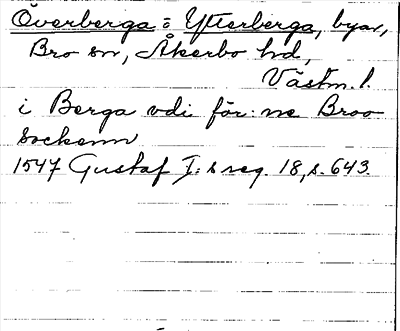 Överberga o Ytterberga, byar,
Bro sn, Åkerbo hd,
Västm. l.
i Berga vdi för:ne Broo
Sockenn
1547 Gustaf I:s reg. 18, s. 643.